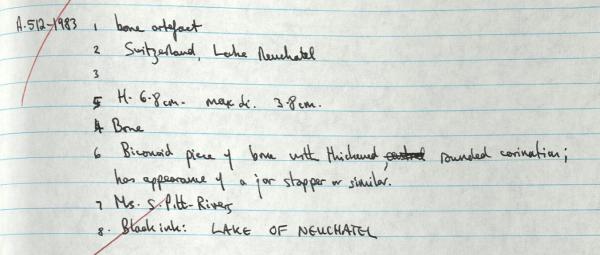 A.512-1983 1 bone artefact
2 Switzerland, Lake Neuchatel
3
5 H. 6.8cm. max di. 3.8cm.
4 Bone
6 Biconoid piece of bone with thickened, central rounded carination;
has appearance of a jar stopper or similar.
7 Ms. S. Pitt-Rivers
8. Black ink: LAKE OF NEUCHATEL